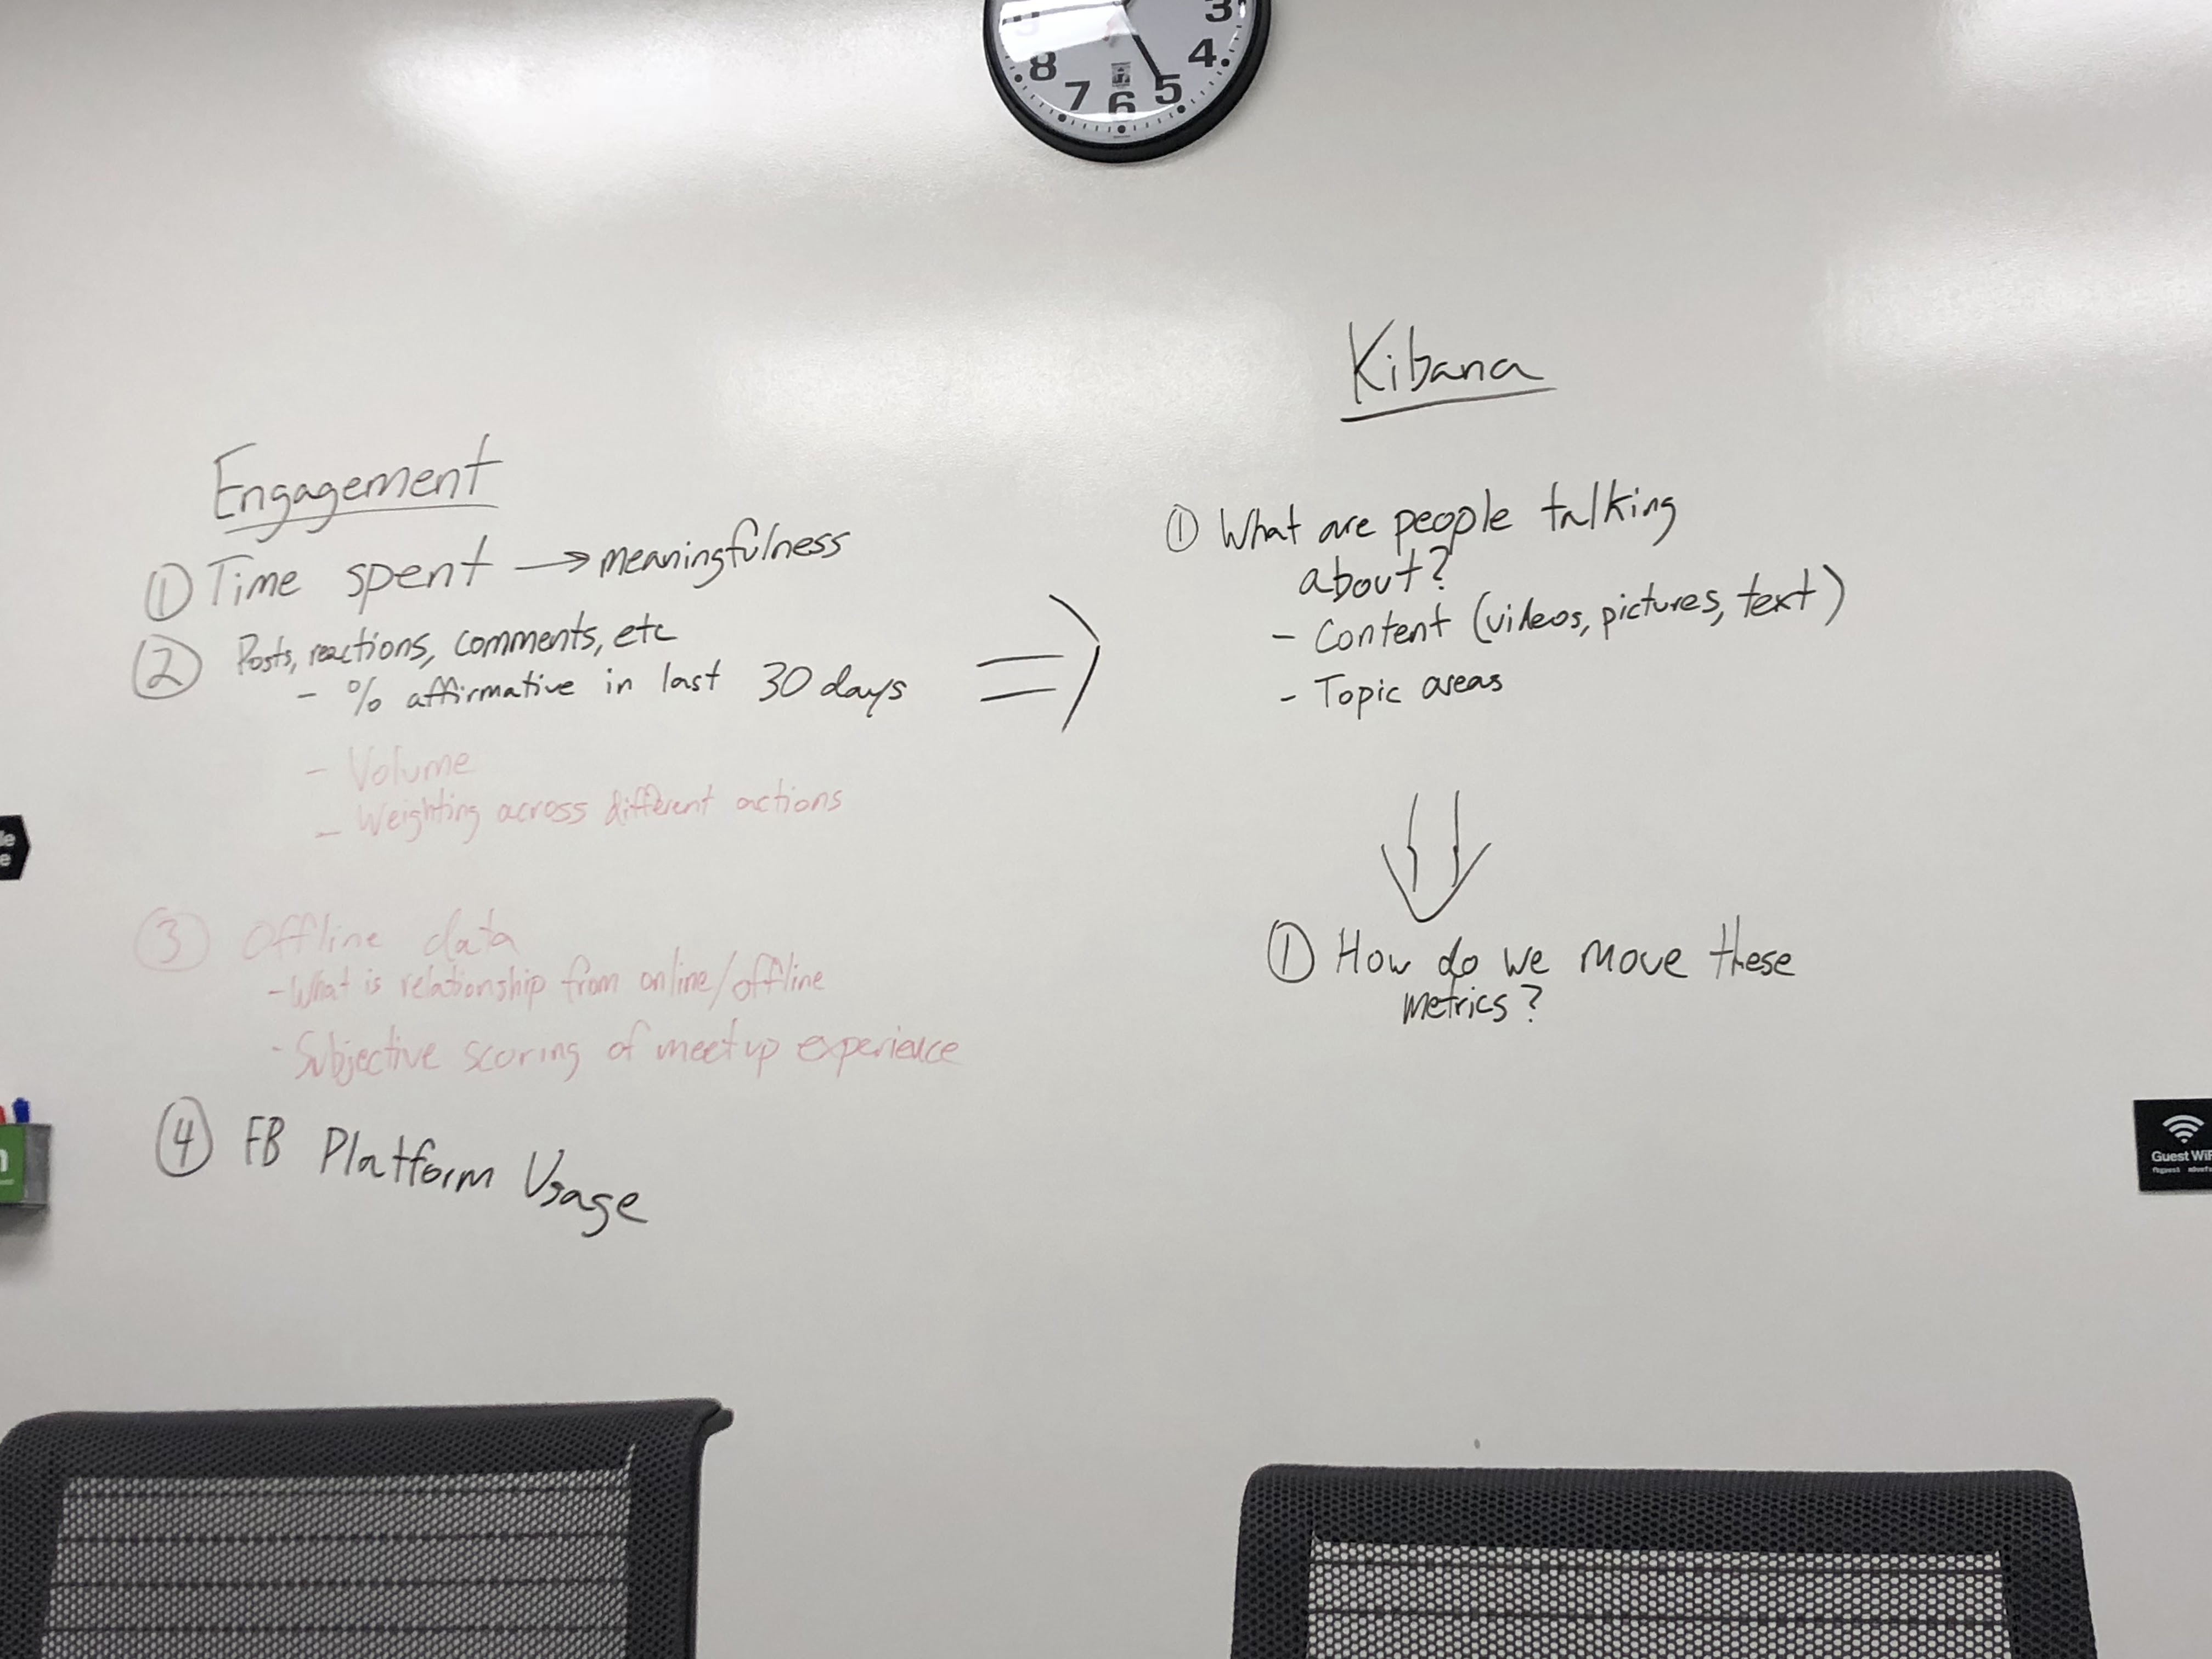 3
4
5
6
7
8
Kibana
Engagement
① Time spent → meaningfulness
② Posts, reactions, comments, etc
- % affirmative in last 30 days
- Volume
- Weighting across different actions
③ Offline data
- What is relationship from online/offline
- Subjective scoring of meetup experience
④ FB Platform Usage
⇒
① What are people talking
about?
- Content (videos, pictures, text)
- Topic areas
⇓
① How do we move these
metrics?
Guest WiF